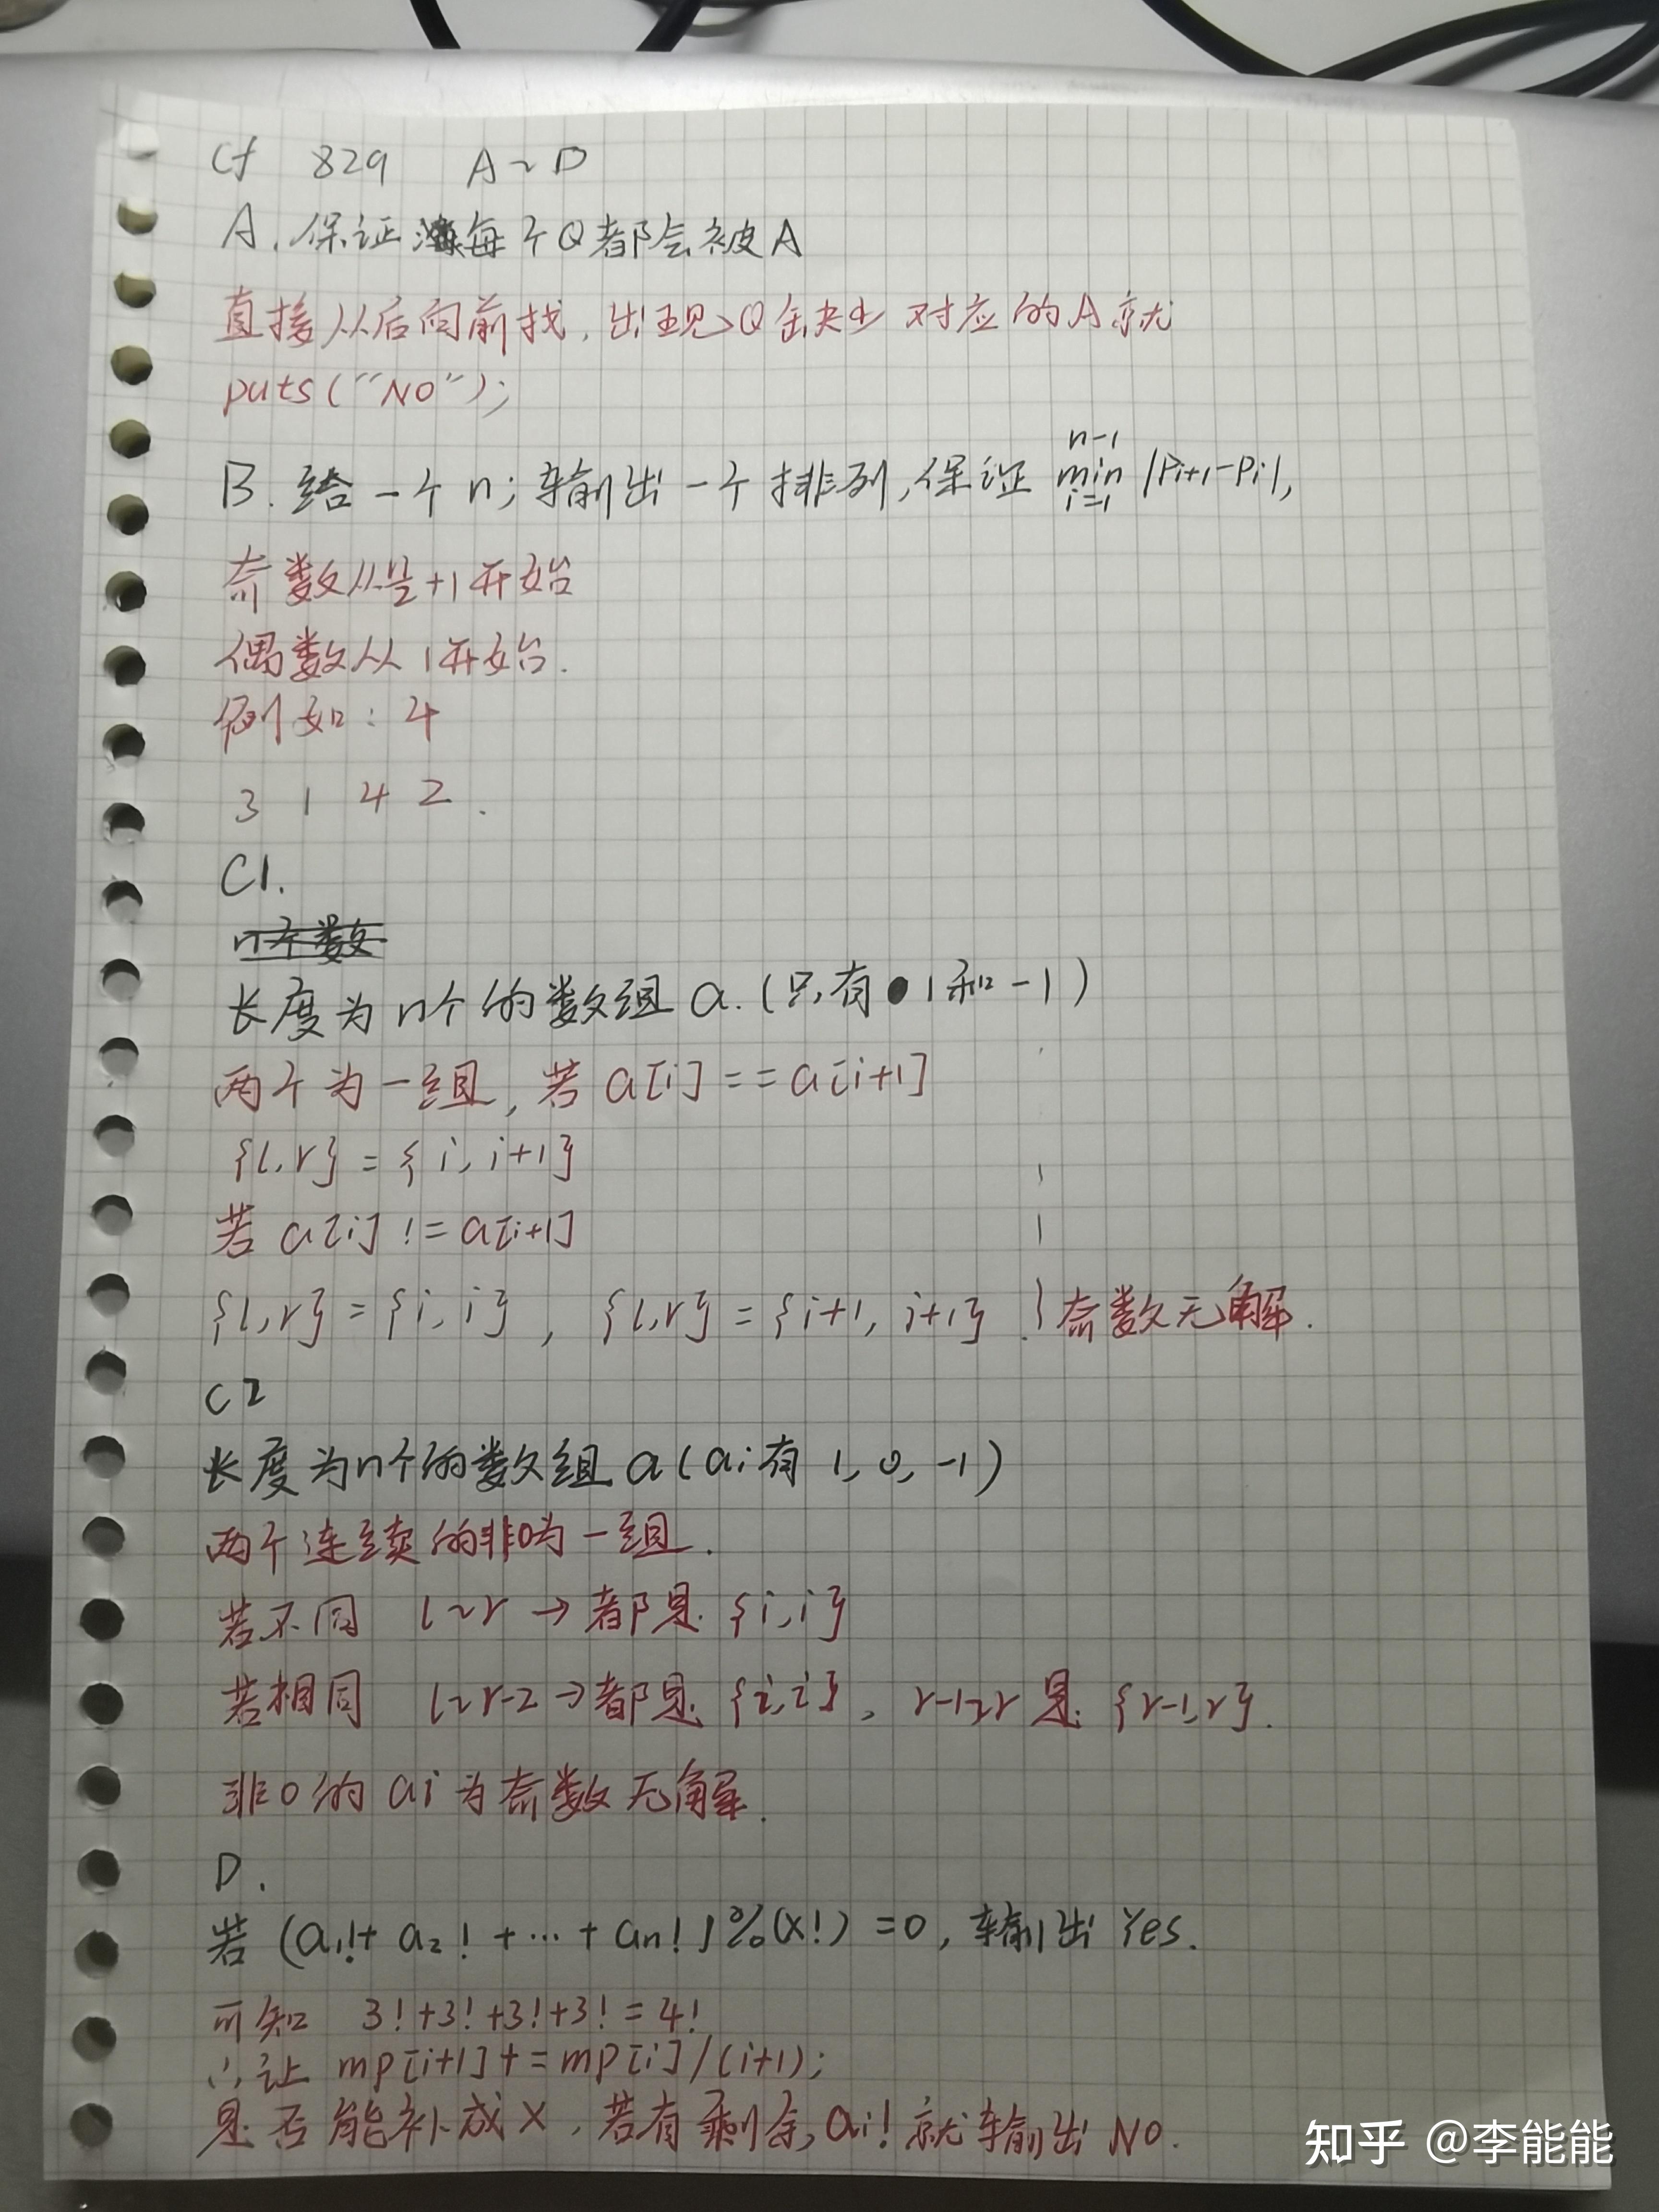 cf 829 A~D
A. 保证每个Q都会被A
直接从后向前找, 出现Q缺少对应的A就
puts("NO");
B. 给一个n; 输出一个排列, 保证 min_{i=1}^{n-1} |Pi+1-Pi|,
奇数从n/2+1开始
偶数从1开始.
例如: 4
3 1 4 2 .
C1.
n个数
长度为n个的数组a.(只有1和-1)
两个为一组, 若a[i]==a[i+1]
{l,r}={i, i+1}
若a[i]!=a[i+1]
{l,r}={i, i}, {l,r}={i+1, i+1} } 奇数无解.
C2
长度为n个的数组a(ai有1, 0, -1)
两个连续的非0为一组.
若不同 l~r→都是{i,i}
若相同 l~r-2→都是{i,i}, r-1~r是{r-1,r}.
非0的ai为奇数无解.
D.
若(a1!+a2!+···+an!)%(x!)=0, 输出Yes.
可知 3!+3!+3!+3!=4!
∴让mp[i+1]+=mp[i]/(i+1);
是否能补成x, 若有剩余ai!就输出NO.
知乎 @李能能